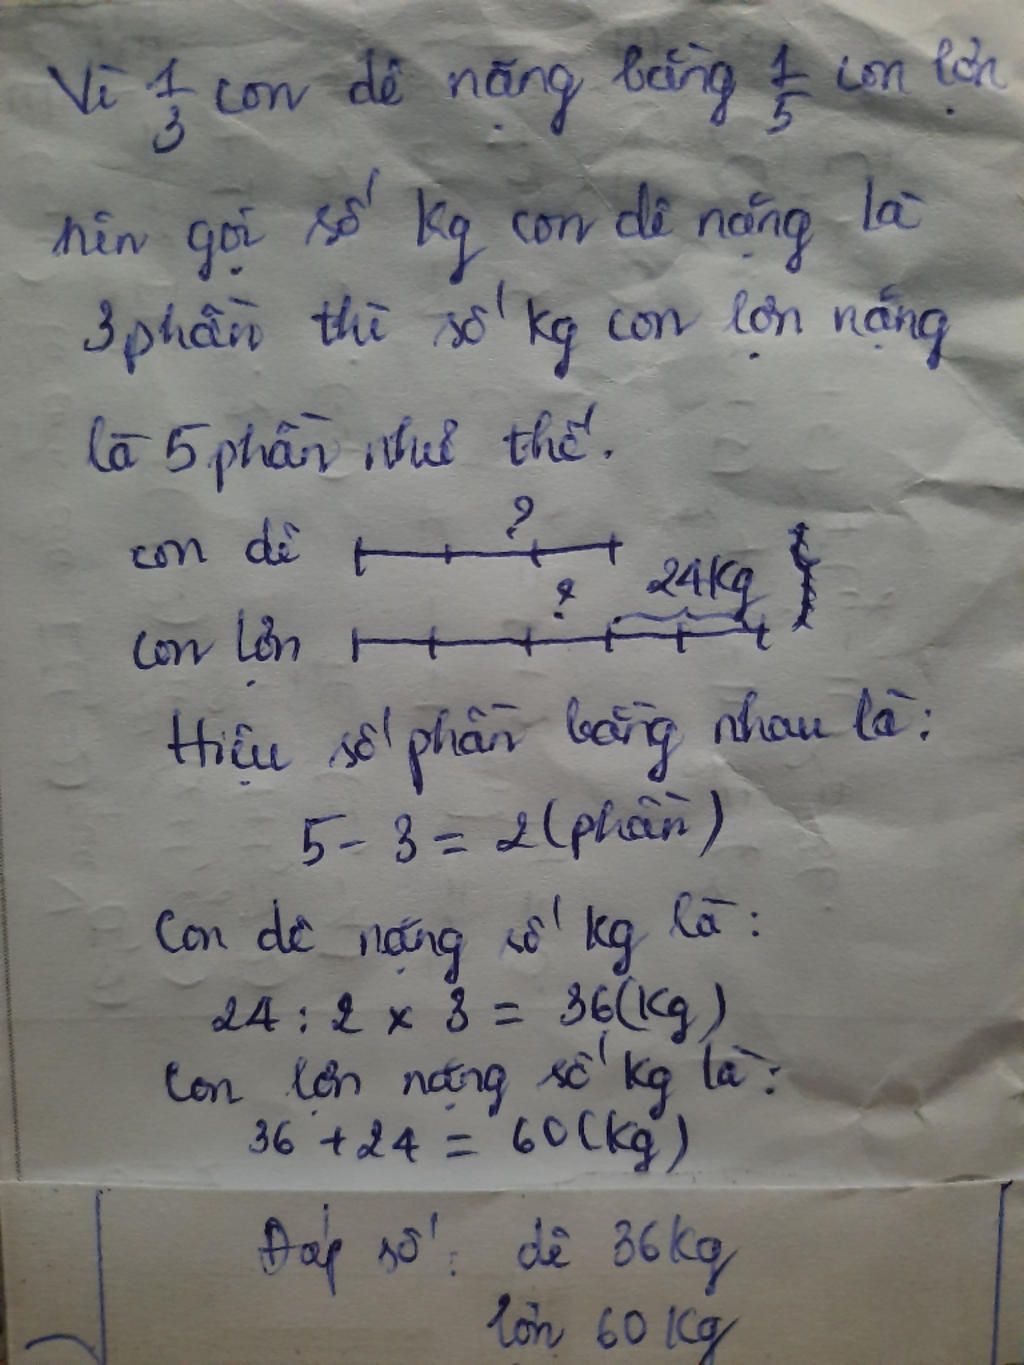 Vì 1/3 con dê nặng bằng 1/5 con lợn
nên gọi số kg con dê nặng là
3 phần thì số kg con lợn nặng
là 5 phần như thế.
?
con dê
? 24kg
con lợn
Hiệu số phần bằng nhau là:
5 - 3 = 2 (phần)
Con dê nặng số kg là:
24 : 2 x 3 = 36 (kg)
Con lợn nặng số kg là:
36 + 24 = 60 (kg)
Đáp số: dê 36 kg
lợn 60 kg